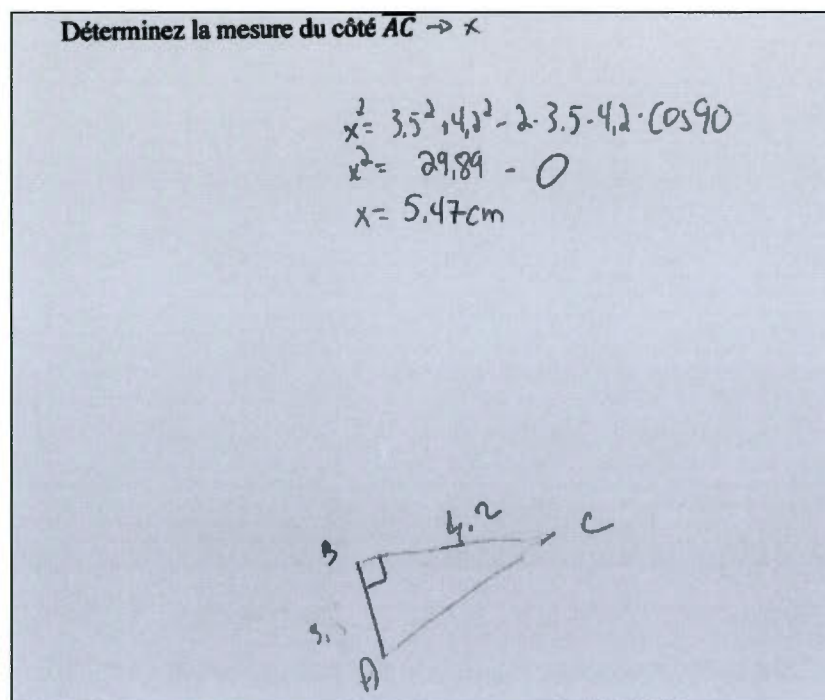 Déterminez la mesure du côté AC → x
x² = 3,5² + 4,2² - 2 · 3.5 · 4,2 · Cos90
x² = 29,89 - 0
x = 5,47cm
4.2
C
B
A